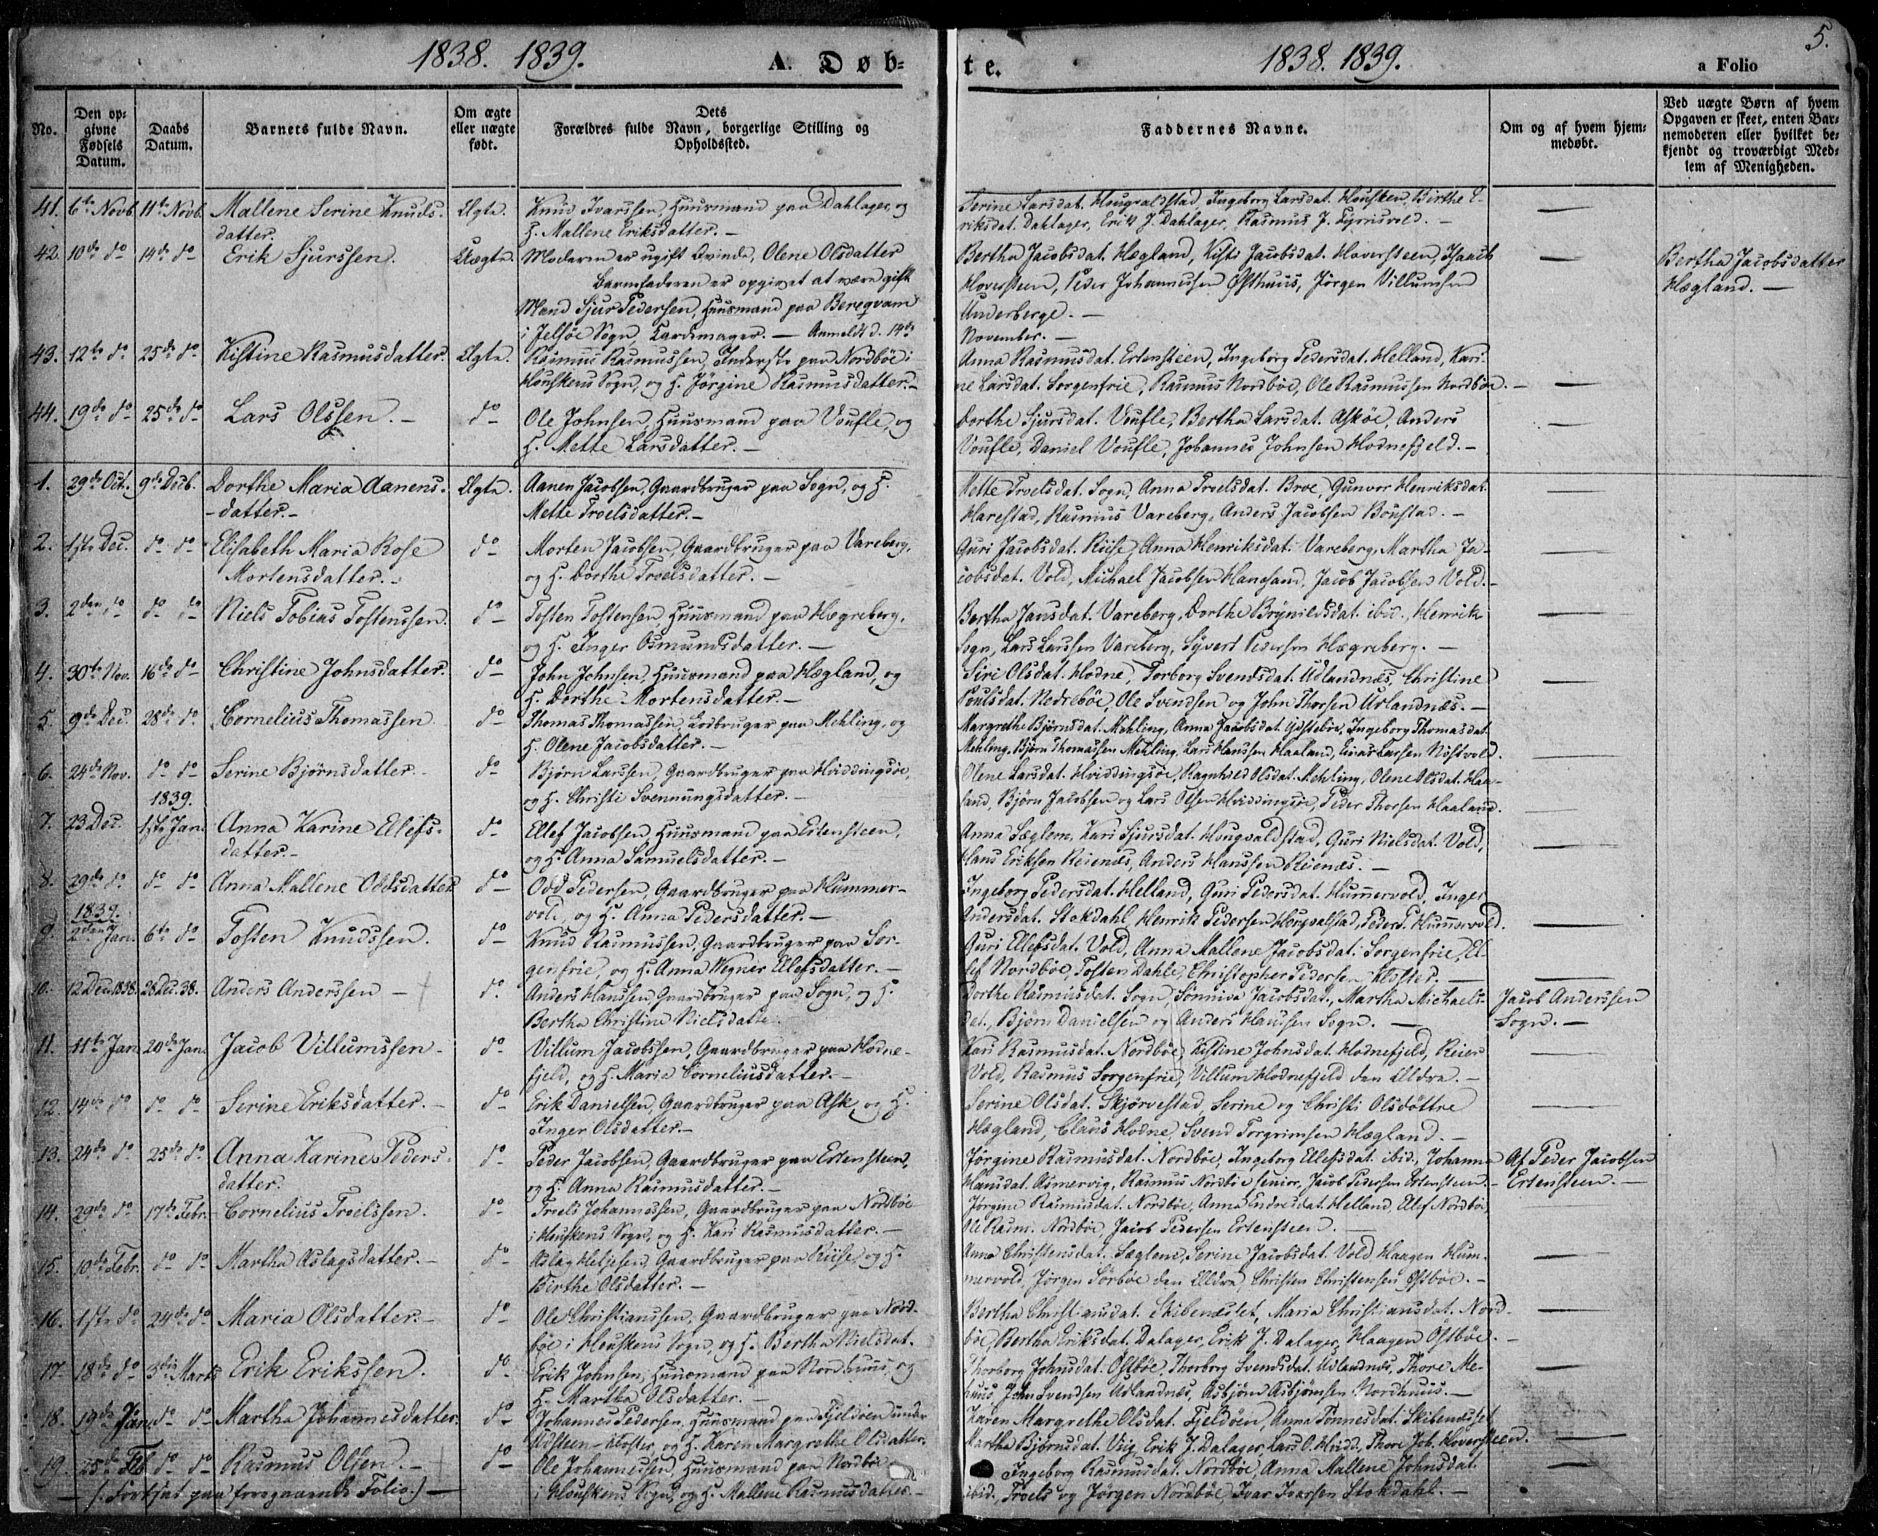 1838. 1839. A. Døb=
te. 1838. 1839. a Folio 5.
No.
Den op=
givne
Fødsels
Datum.
Daabs
Datum.
Barnets fulde Navn.
Om ægte
eller uægte
født.
Dets
Forældres fulde Navn, borgerlige Stilling og
Opholdssted.
Faddernes Navne.
Om og af hvem hjem=
medøbt.
Ved uægte Børn af hvem
Opgaven er skeet, enten Bar=
nemoderen eller hvilket be=
kjendt og troværdigt Med=
lem af Menigheden.
41. 6te Novb. 11te Novb. Mallene Serine Knuds-
datter.
Ægte.
Knud Ivarssen, Huusmand paa Dahlager, og
H. Mallene Eriksdatter. —
Serine Larsdat. Hougvaldstad, Ingeborg Larsdat. Housken, Birthe E-
riksdat. Dahlager, Erik J. Dahlager, Rasmus J. —
42. 10de do 14de do Erik Sjurssen. Uægte.
Moderen er ugift Qvinde, Olene Olsdatter
Barnefaderen er opgivet at være gift
Mand Sjur Pedersen, Huusmand paa Bergqvam
i Jelsøe Sogn, — Anmeldt d. 14de
Bertha Jacobsdat. Hægland, Kisti Jacobsdat. Hoversteen, Isaach
Hoversteen, Peder Johannessen Østhuus, Jørgen Villumsen
Underberge. —
November. —
Bertha Jacobsdatter
Hægland. —
43. 12te do 25de do Kistine Rasmusdatter. Ægte.
Rasmus Rasmussen, Inderste paa Nordbøe i
Houskens Sogn, og H. Jørgine Rasmusdatter. —
Anna Rasmusdat. Ertensteen, Ingeborg Pedersdat. Helland, Kari-
ne Larsdat. Sorgenfrie, Rasmus Nordbøe, Ole Rasmussen Nordbøe. —
44. 19de do 25de do Lars Olssen. — do —
Ole Johnsen, Huusmand paa Voufle, og
H. Mette Larsdatter. —
Dorthe Sjursdat. Voufle, Bertha Larsdat. Askøe, Anders
Voufle, Daniel Voufle, Johannes Johnsen Hodnefjeld. —
1. 29de Oct. 9de Decb. Dorthe Maria Aanens-
- datter. —
Ægte.
Aanen Jacobsen, Gaardbruger paa Sogn, og H.
Mette Troelsdatter. —
Mette Troelsdat. Sogn, Anna Troelsdat. Broe, Gunvor Henriksdat.
Harestad, Rasmus Vareberg, Anders Jacobsen Boustad. —
2. 1ste Dec. do do Elisabeth Maria Rose
Mortensdatter. —
do
Morten Jacobsen, Gaardbruger paa Vareberg,
og H. Dorthe Troelsdatter. —
Guri Jacobsdat. Riise, Anna Henriksdat. Vareberg, Martha Ja-
cobsdat. Vold, Michael Jacobsen Hanasand, Jacob Jacobsen Vold. —
3. 2den do do do Niels Tobias Tostenssen. do —
Tosten Tostensen, Huusmand paa Hægreberg,
og H. Inger Osmundsdatter. —
Bertha Jansdat. Vareberg, Dorthe Brynildsdat. ibid., Henrik
Sogn, Lars Larssen Vareberg, Syvert Pedersen Hægreberg. —
4. 30te Nov. 16de do Christine Johnsdatter. do —
John Johnsen, Huusmand paa Hægland, og
H. Dorthe Mortensdatter. —
Siri Olsdat. Hodne, Torborg Svendsdat. Udlandnæs, Christine
Poulsdat. Nedrebøe, Ole Svendsen og John Thorsen Udlandnæs. —
5. 9de Dec. 28de do Cornelius Thomassen. do —
Thomas Thomassen, Løsbruger paa Mehling, og
H. Olene Jacobsdatter. —
Margrethe Bjørnsdat. Mehling, Anna Jacobsdat. Udstebøe, Ingeborg Thomasdat.
Mehling, Bjørn Thomassen Mehling, Lars Hanssen Haaland, Einar Larsen Nøstvold.
6. 24de Nov. do do Serine Bjørnsdatter. do —
Bjørn Larssen, Gaardbruger paa Hviddingsøe,
og H. Christi Svennungsdatter. —
Olene Larsdat. Hviddingsøe, Ragnhild Olsdat. Mehling, Olene Olsdat. Haa-
land, Bjørn Jacobsen og Lars Olsen Hviddingsøe, Peder Thorsen Haaland.
1839.
7. 23 Dec. 1ste Jan. Anna Karine Elefs-
datter. —
do —
Ellef Jacobsen, Huusmand paa Ertensteen,
og H. Anna Samuelsdatter. —
Anna Sæglem, Kari Sjursdat. Hougvaldstad, Guri Nielsdat. Vold,
Hans Eriksen Reienæs, Anders Hanssen Reienæs. —
8. 29de do do do Anna Mallene Oddsdatter do —
Odd Pedersen, Gaardbruger paa Hummer-
vold, og H. Anna Pedersdatter. —
Ingeborg Pedersdat. Helland, Guri Pedersdat. Hummervold, Inger
Andersdat. Stokdahl, Henrik Pedersen Hougvalstad, Peder P. Hummervold.
1839.
9. 2den Jan. 6te do Tosten Knudssen. do —
Knud Rasmussen, Gaardbruger paa Sor-
genfrie, og H. Anna Wegner Ellefsdatter. —
Guri Ellefsdat. Vold, Anna Mallene Jacobsdat. Sorgenfrie, El-
lef Nordbøe, Tosten Dahle, Christopher Pedersen Kloster. —
10. 12 Dec. 1838. 28 Dec. 38. Anders Anderssen — do
Anders Hanssen, Gaardbruger paa Sogn, og H.
Bertha Christine Nielsdatter.
Dorthe Rasmusdat. Sogn, Sønniva Jacobsdat., Martha Michaels-
dat., Bjørn Danielsen og Anders Hanssen Sogn. —
Jacob Anderssen
Sogn. —
11. 11te Jan. 20de Jan. Jacob Villumssen. do
Villum Jacobssen, Gaardbruger paa Hodne-
fjeld, og H. Maria Corneliusdatter. —
Kari Rasmusdat. Nordbøe, Kistine Johnsdat. Hodnefjeld, Reier
Vold, Rasmus Sorgenfrie, Villum Hodnefjeld den Ældre. —
12. 14de do do do Serine Eriksdatter. — do —
Erik Danielsen, Gaardbruger paa Ask, og H.
Inger Olsdatter. —
Serine Olsdat. Skjørvestad, Serine og Christi Olsdøttre
Hægland, Claus Hodne, Svend Torgrimsen Hægland. —
13. 24de do 25de do Anna Karine Peders-
datter.
do
Peder Jacobsen, Gaardbruger paa Ertensteen,
og H. Anna Rasmusdatter. —
Jørgine Rasmusdat. Nordbøe, Ingeborg Ellefsdat. ibid., Johanna
Hansdat. Asmervig, Rasmus Nordbøe senior, Jacob Pedersen Ertensteen. —
Af Peder Jacobsen
Ertensteen. —
14. 29de do 17de Febr. Cornelius Troelssen. do
Troels Johannessen, Gaardbruger paa Nordbøe
i Houskens Sogn, og H. Kari Rasmusdatter. —
Jørgine Rasmusdat. Nordbøe, Anna Endresdat. Helland, Elef Nordbøe,
Ole Rasm. Nordbøe, Jacob Pedersen Ertensteen. —
15. 10de Febr. do do Martha Aslagsdatter. — do
Aslag Helgesen, Gaardbruger paa Riise, og H.
Birthe Olsdatter. —
Anna Christensdat. Sæglem, Serine Jacobsdat. Vold, Haagen Hum-
mervold, Jørgen Sørbøe den Ældre, Christen Christensen Østbøe. —
16. 1ste do 24de do Maria Olsdatter. — do
Ole Christianssen, Gaardbruger paa Nord-
bøe i Houskens Sogn, og H. Bertha Nielsdat.
Bertha Christiansdat. Skibenæstet, Maria Christiansdat. Nord-
bøe, Bertha Eriksdat. Dalager, Erik J. Dalager, Haagen Østbøe. —
17. 18de do 3die Marts Erik Erikssen. do
Erik Johnsen, Huusmand paa Nordhuus, og
H. Martha Olsdatter. —
Thorborg Johnsdat. Østbøe, Thorborg Svendsdat. Udlandnæs, Thore Me-
huus, John Svendsen Udlandnæs, Asbjørn Asbjørnsen Nordhuus. —
18. 19de Janr. do do Martha Johannesdatter. do
Johannes Pedersen, Huusmand paa Fjeldøen under
Udsteen-Kloster, og H. Karen Margrethe Olsdatter.
Karen Margrethe Olsdat. Fjeldøen, Anna Tønnesdat. Skibenæsset,
Martha Bjørnsdat. Viig, Erik J. Dalager, Lars O. Hvid., Thore Joh. Hoversteen.
19. 25de Feb. do do Rasmus Olsen. — do —
Ole Johannessen, Huusmand paa Nordbøe
i Houskens Sogn, og H. Mallene Rasmusdatter. —
Ingeborg Rasmusdat. Nordbøe, Anna Mallene Johnsdat.
ibid., Troels og Jørgen Nordbøe, Ivar Ivarsen Stokdahl. —
— (: Fortsat paa foregaaende Folio :) —